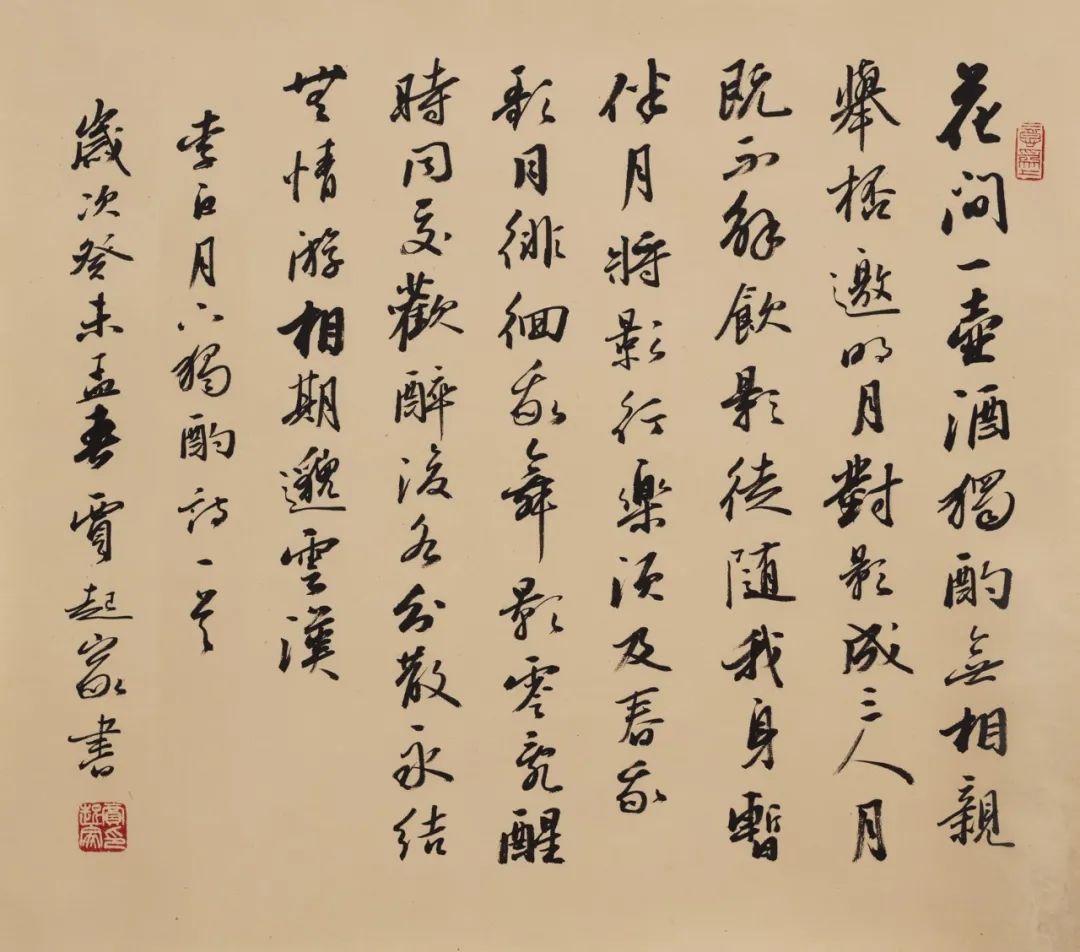 花間一壺酒獨酌無相親
舉桮邀明月對影成三人月
既不解飲影徒隨我身暫
伴月將影行樂須及春我
歌月徘徊我舞影零亂醒
時同交歡醉後各分散永結
無情游相期邈雲漢
李白月下獨酌詩一首
歲次癸未孟春賈起家書
賈印起家